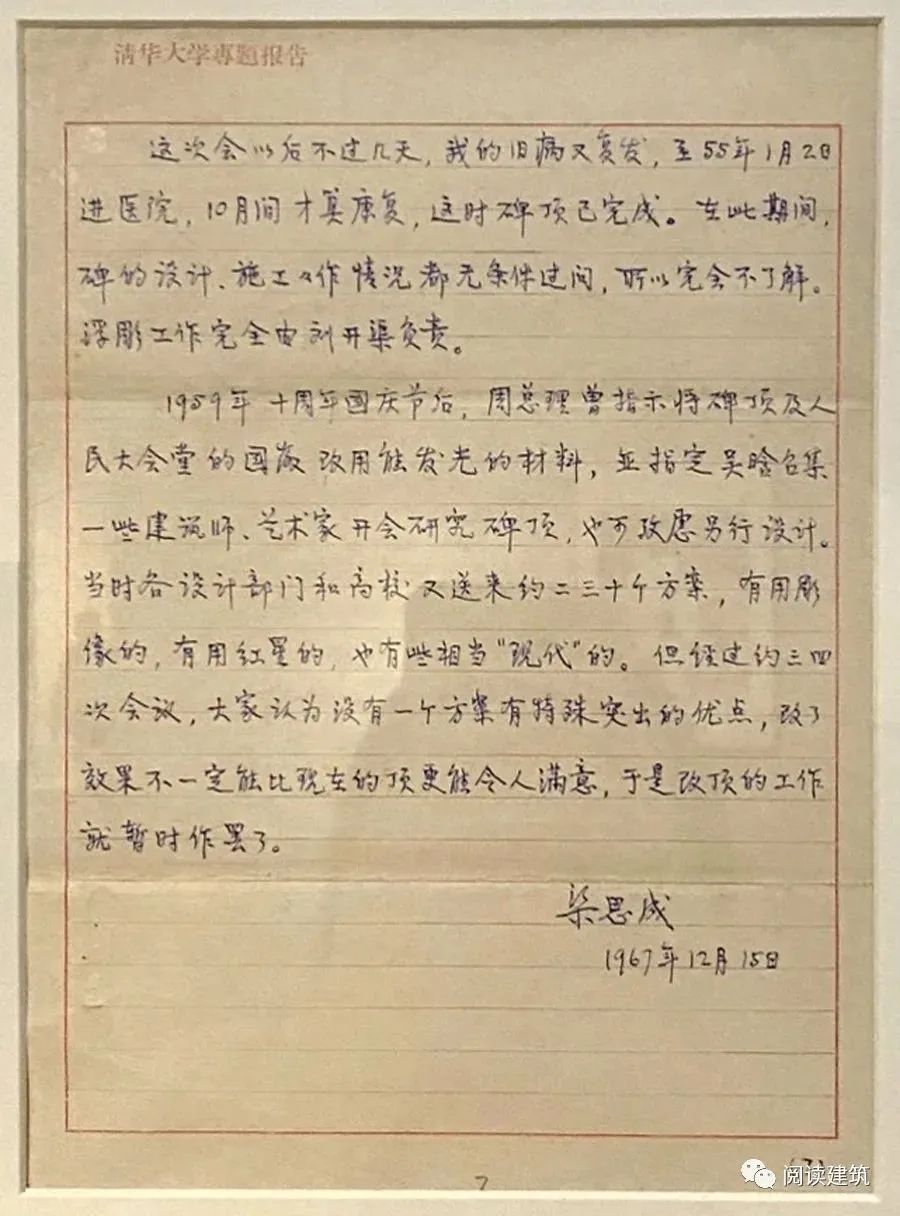 清华大学專題报告
这次会以后不过几天，我的旧病又复发，至55年1月2日
进医院，10月间才算康复，这时碑顶已完成。在此期间，
碑的设计、施工々作情况都无条件过问，所以完全不了解。
浮彫工作完全由刘开渠负责。
1959年十周年国庆节后，周总理曾指示将碑顶及人
民大会堂的国徽改用能发光的材料，並指定吴晗召集
一些建筑师、艺术家开会研究碑顶，也可攷虑另行设计。
当时各设计部门和高校又送来约二三十个方案，有用彫
像的，有用红星的，也有些相当“现代”的。但经过约三四
次会议，大家认为没有一个方案有特殊突出的优点，改了
效果不一定能比现在的顶更能令人满意，于是改顶的工作
就暂时作罢了。
梁思成
1967年12月15日
(7)
7
阅读建筑